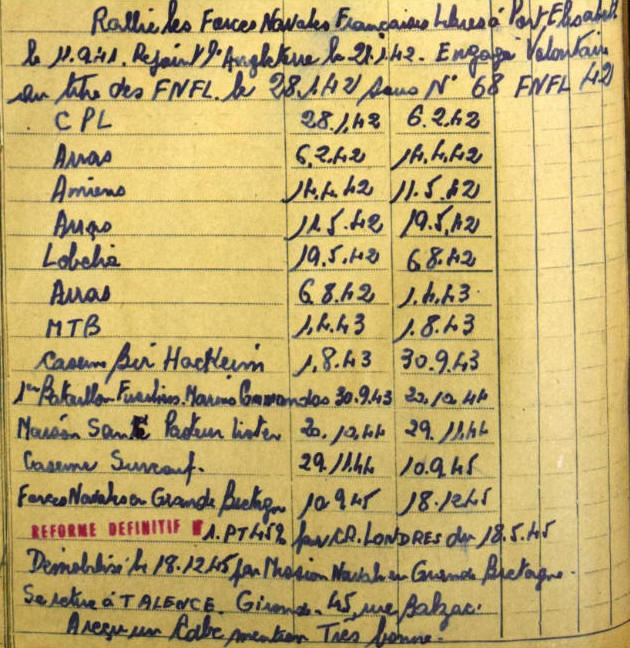 Rallie les Forces Navales Françaises Libres à Port Elisabeth
le 11.9.41. Rejoint l'Angleterre le 28.1.42. Engagé Volontaire
au titre des FNFL. le 28.1.42 sous N° 68 FNFL 42
CPL 28.1.42 6.2.42
Arras 6.2.42 14.4.42
Amiens 14.4.42 11.5.42
Arras 11.5.42 19.5.42
Lobelia 19.5.42 6.8.42
Arras 6.8.42 1.4.43
MTB 1.4.43 1.8.43
Caserne Bir Hackeim 1.8.43 30.9.43
1er Bataillon Fusiliers Marins Commandos 30.9.43 20.10.44
Maison Santé Pasteur Lister 20.10.44 29.11.44
Caserne Surcouf. 29.11.44 10.9.45
Forces Navales en Grande Bretagne 10.9.45 18.12.45
REFORME DEFINITIF 1. PT 45% par CR. LONDRES du 18.5.45
Démobilisé le 18.12.45 par Mission Navale en Grande Bretagne.
Se retire à TALENCE. Gironde. 45, rue Balzac.
A reçu un mention Très bonne.